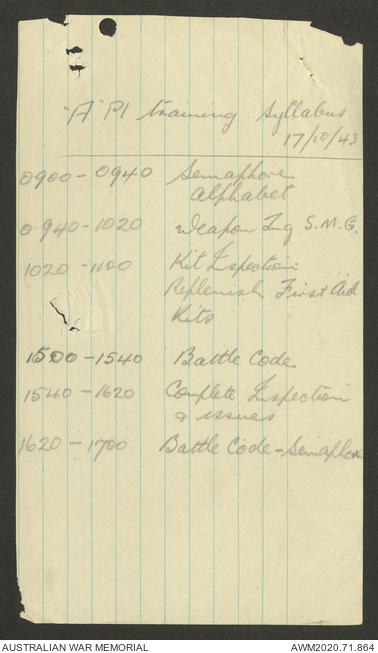 "A" Pl training Syllabus
17/10/43
0900-0940 Semaphore
alphabet
0940-1020 Weapon Tng S.M.G.
1020-1100 Kit Inspection
Replenish First Aid
Kits
1500-1540 Battle Code
1540-1620 Complete Inspection
& issues
1620-1700 Battle Code-Semaphore
AUSTRALIAN WAR MEMORIAL AWM2020.71.864